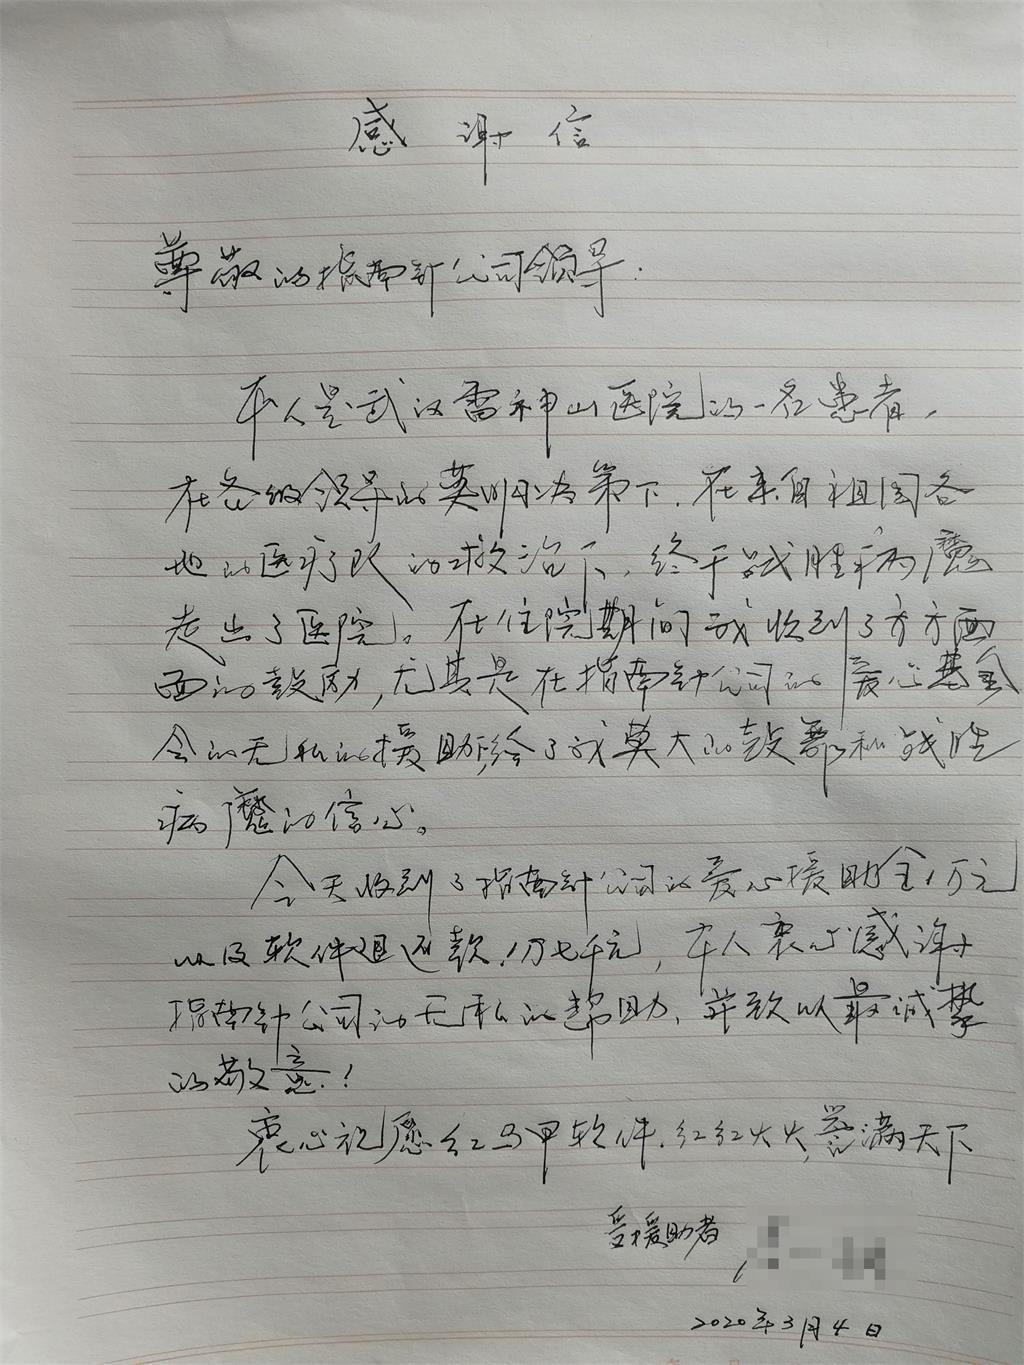 感谢信
尊敬的指南针公司领导：
本人是武汉雷神山医院的一名患者，
在各级领导的英明决策下，在来自祖国各
地的医疗队的救治下，终于战胜病魔
走出了医院。在住院期间我收到了方方面
面的鼓励，尤其是在指南针公司的爱心基金
会的无私的援助，给了我莫大的鼓舞和战胜
病魔的信心。
今天收到了指南针公司的爱心援助金1万元
以及软件退还款1万七千元，本人衷心感谢
指南针公司的无私的帮助，并致以最诚挚
的敬意！
衷心祝愿红马甲软件，红红火火，誉满天下
受援助者
2020年3月4日